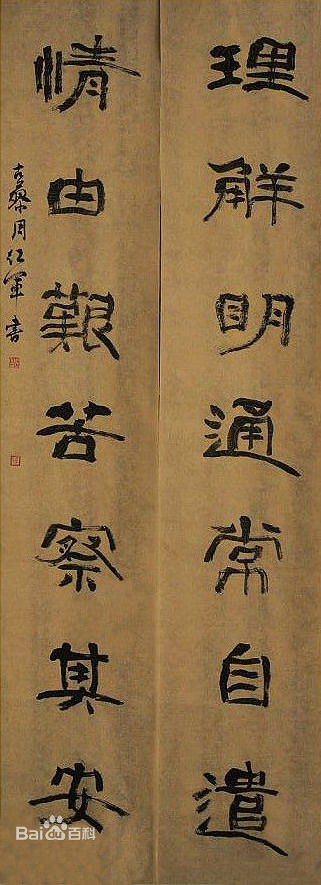 理解明通常自遣
情由艱苦察其安
古黎周红军書
Bai百科